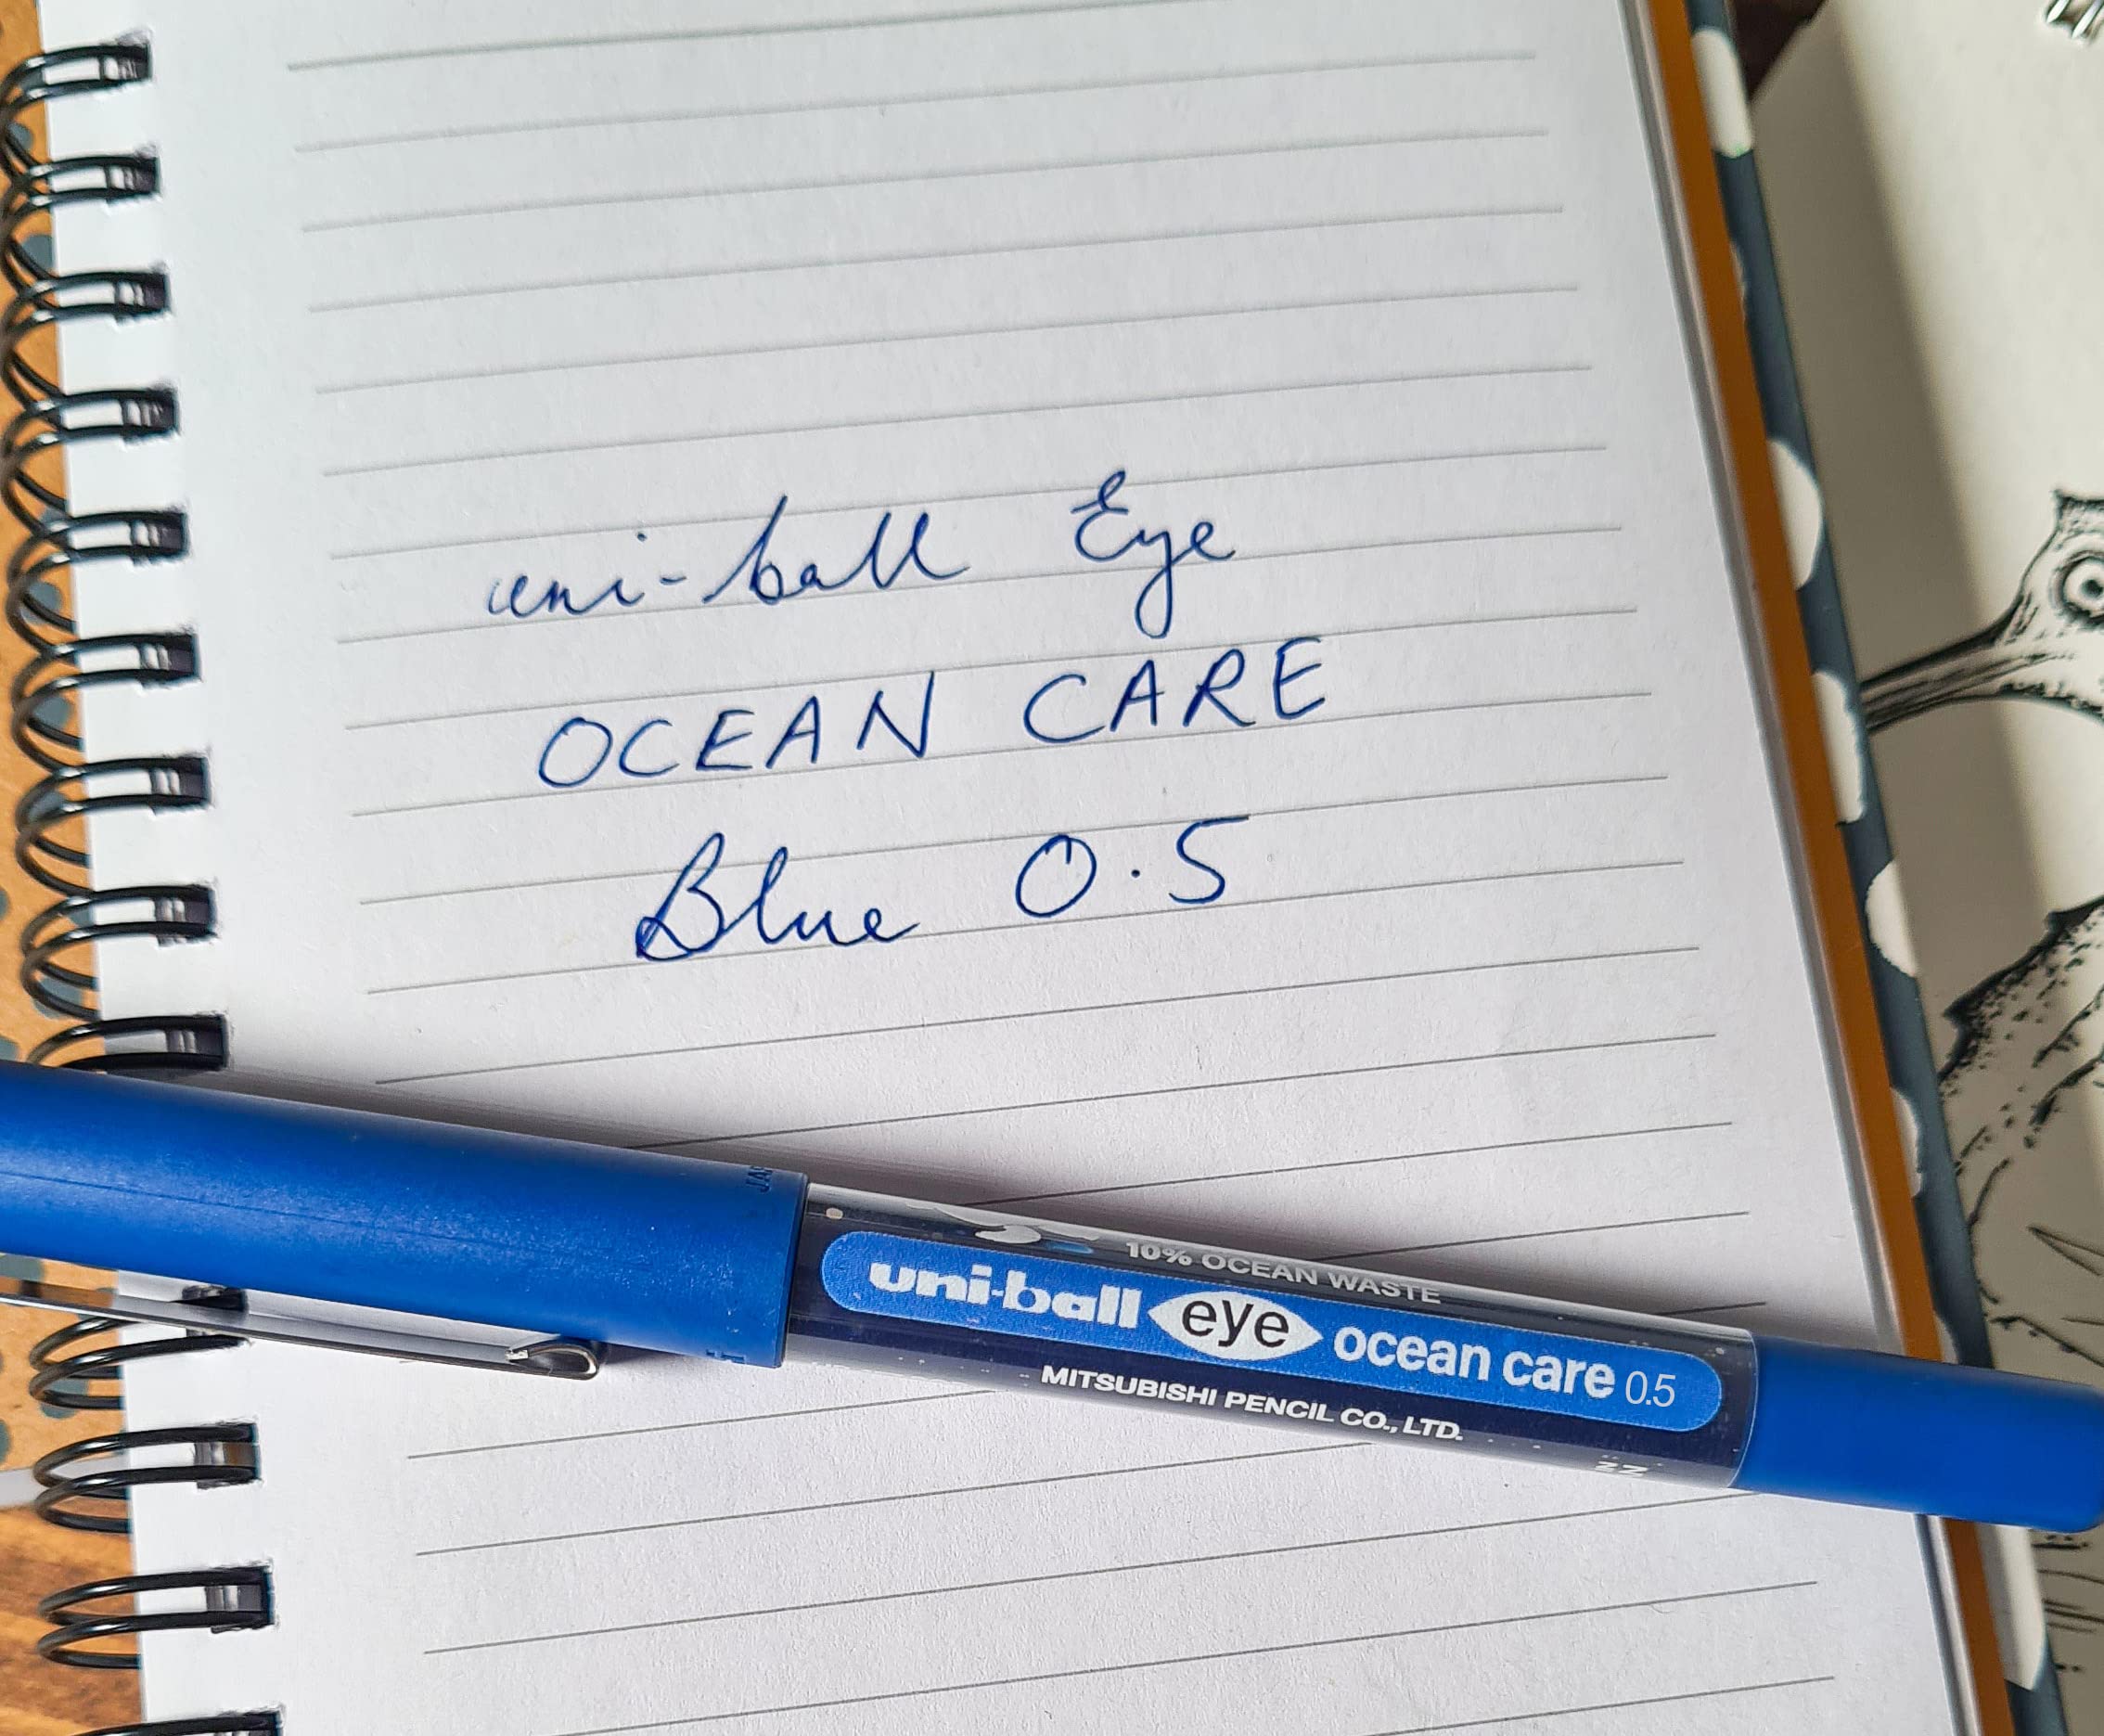 uni-ball Eye
OCEAN CARE
Blue 0.5
10% OCEAN WASTE
uni-ball eye ocean care 0.5
MITSUBISHI PENCIL CO., LTD.